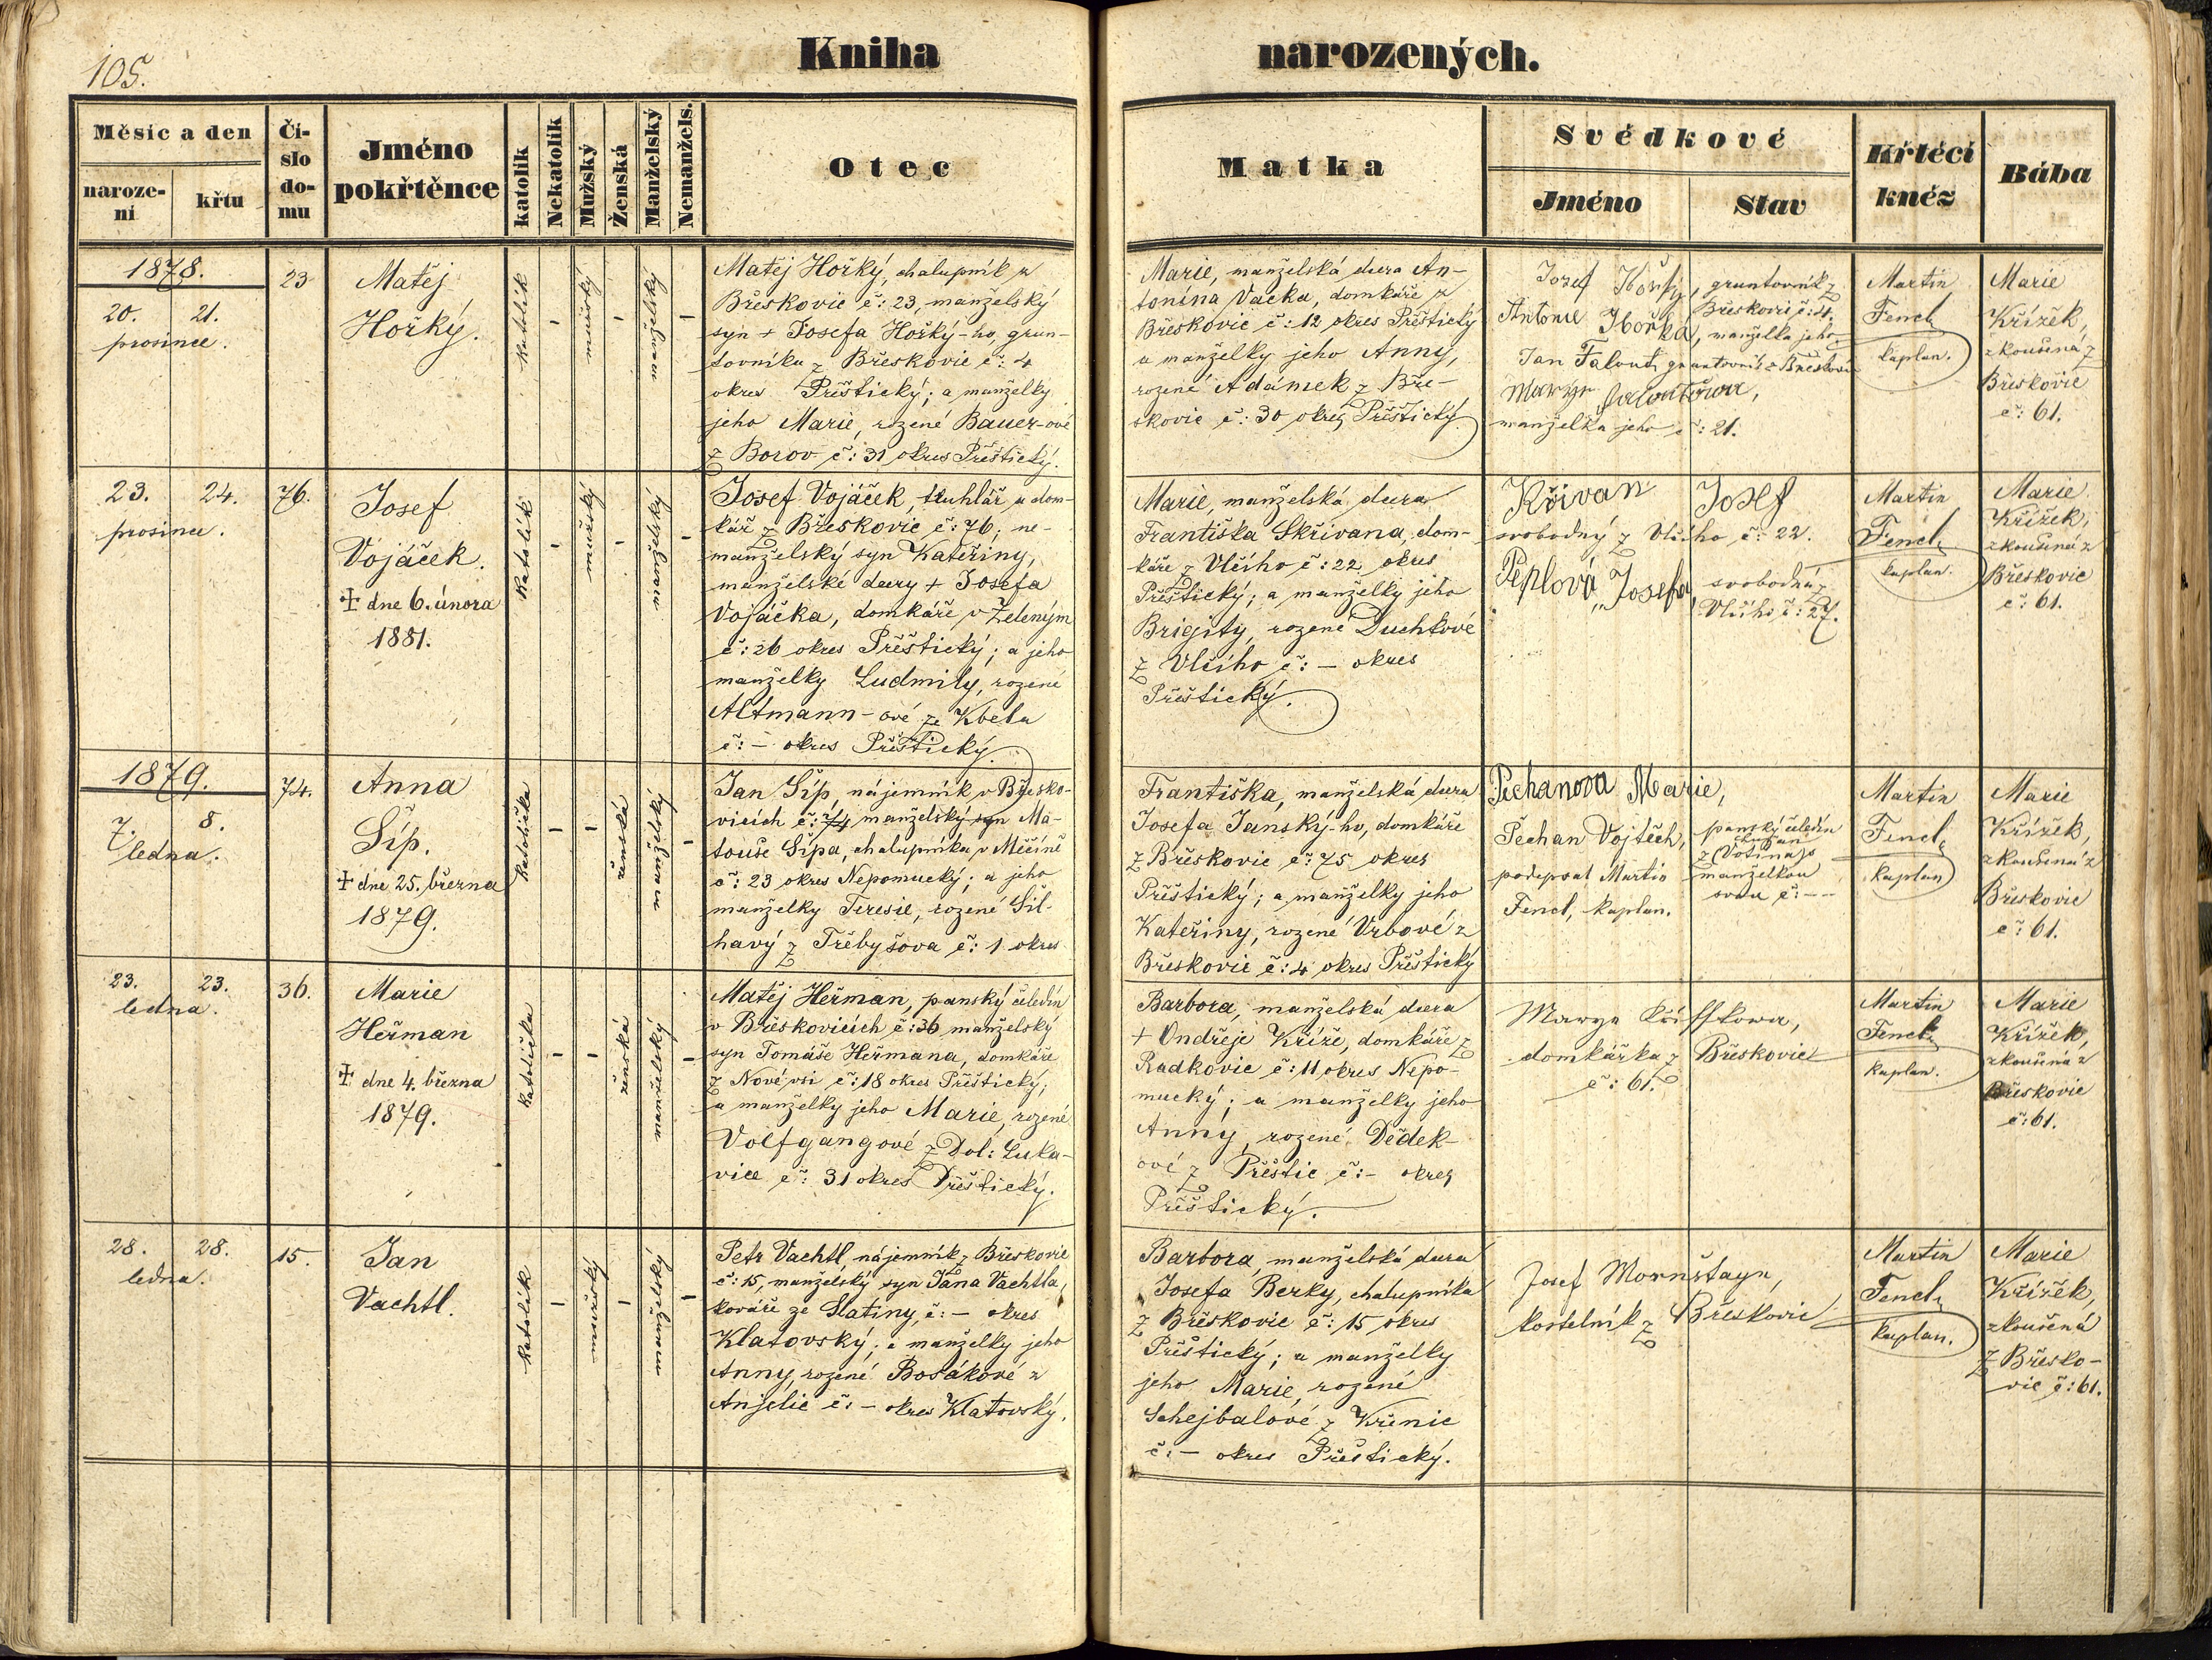 105.
Kniha narozených.
Měsíc a den
naroze-
ní
křtu
Čí-
slo
do-
mu
Jméno
pokřtěnce
katolík
Nekatolík
Mužský
Ženská
Manželský
Nemanžels.
Otec
Matka
Svědkové
Jméno
Stav
Křtící
kněz
Bába
1878.
20. 21.
prosince.
23
Matěj
Hořký.
katolík
-
mužský
-
manželský
-
Matěj Hořký, chalupník z
Břeskovic č: 23, manželský
syn + Josefa Hořký-ho, grun-
tovníka z Břeskovic č: 4
okres Přeštický; a manželky
jeho Marie, rozené Bauer-ové
z Borov č: 31 okres Přeštický.
Marie, manželská dcera An-
tonína Vacka, domkáře z
Břeskovic č: 12 okres Přeštický
a manželky jeho Anny,
rozené Adámek z Bře-
skovic č: 30 okres Přeštický
Josef Hořký, gruntovník z
Břeskovic č: 4.
Antonie Hořká, manželka jeho
Jan Falout, gruntovník z Břeskovic
Marye Faloutowa,
manželka jeho č: 21.
Martin
Fencl,
kaplan.
Marie
Křížek,
zkoušená z
Břeskovic
č: 61.
23. 24.
prosince.
76.
Josef
Vojáček.
+ dne 6. února
1881.
katolík
-
mužský
-
manželský
-
Josef Vojáček, truhlář a dom-
kář z Břeskovic č: 76; ne-
manželský syn Kateřiny,
manželské dcery + Josefa
Vojáčka, domkáře v Zeleným
č: 26 okres Přeštický; a jeho
manželky Ludmily, rozené
Altmann-ové ze Kbela
č: - okres Přeštický.
Marie, manželská dcera
Františka Skřivana, dom-
káře z Vlčího č: 22 okres
Přeštický; a manželky jeho
Brigity, rozené Duchkové
z Vlčího č: - okres
Přeštický.
Křivan Josef
svobodný z Vlčího č: 22.
Peplová Josefa, svobodná z
Vlčího č: 27.
Martin
Fencl,
kaplan.
Marie
Křížek,
zkoušená z
Břeskovic
č: 61.
1879.
7. 8.
ledna.
74.
Anna
Šíp.
+ dne 25. března
1879.
katolička
-
-
ženská
manželský
-
Jan Šíp, nájemník v Břesko-
vicích č: 74 manželský syn Ma-
touše Šípa, chalupníka v Měčíně
č: 23 okres Nepomucký; a jeho
manželky Teresie, rozené Šil-
havý z Třebyšova č: 1 okres
Františka, manželská dcera
Josefa Janský-ho, domkáře
z Břeskovic č: 75 okres
Přeštický; a manželky jeho
Kateřiny, rozené Vrbové z
Břeskovic č: 4 okres Přeštický
Pechanova Marie,
Pechan Vojtěch, panský čeledín
podepsal Martin manželkou
Fencl, kaplan. svou č: --
Martin
Fencl,
kaplan
Marie
Křížek,
zkoušená z
Břeskovic
č: 61.
23. 23.
ledna.
36.
Marie
Heřman
+ dne 4. března
1879.
katolička
-
-
ženská
manželský
-
Matěj Heřman, panský čeledín
v Břeskovicích č: 36 manželský
syn Tomáše Heřmana, domkáře
z Nové vsi č: 18 okres Přeštický;
a manželky jeho Marie, rozené
Volfgangové z Dol: Luka-
vice č: 31 okres Přeštický.
Barbora, manželská dcera
+ Ondřeje Kříže, domkáře z
Radkovic č: 11 okres Nepo-
mucký; a manželky jeho
Anny, rozené Dědek-
ové z Přeštic č: - okres
Přeštický.
Marya
domkářka z Břeskovic
č: 61.
Martin
Fencl,
kaplan.
Marie
Křížek,
zkoušená z
Břeskovic
č: 61.
28. 28.
ledna.
15.
Jan
Vachtl.
katolík
-
mužský
-
manželský
-
Petr Vachtl, nájemník z Břeskovic
č: 15, manželský syn Jana Vachtla,
kováře ze Slatiny, č: - okres
Klatovský; a manželky jeho
Anny, rozené Bosákové z
Anjelic č: - okres Klatovský.
Barbora, manželská dcera
Josefa Berky, chalupníka
z Břeskovic č: 15 okres
Přeštický; a manželky
jeho Marie, rozené
Schejbalové z Křenic
č: - okres Přeštický.
Josef Mornštayn,
kostelník z Břeskovic
Martin
Fencl,
kaplan.
Marie
Křížek,
zkoušená
z Břesko-
vic č: 61.